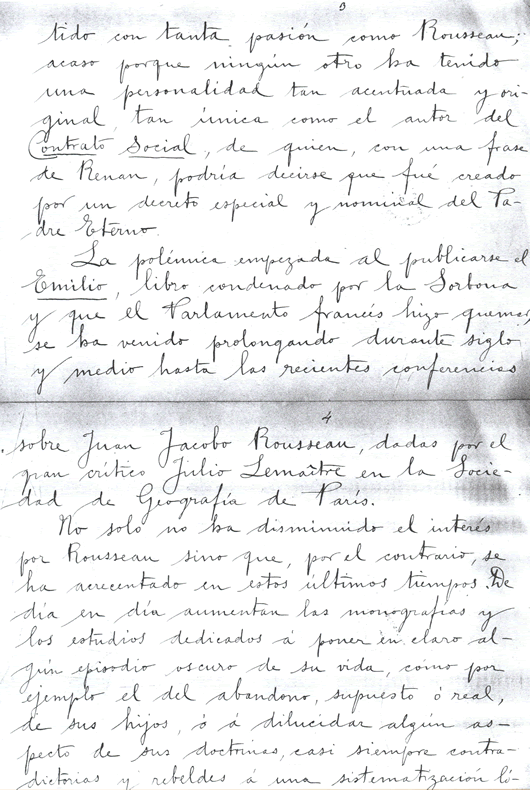 3
tido con tanta pasión como Rousseau;
acaso porque ningún otro ha tenido
una personalidad tan acentuada y ori-
ginal, tan única como el autor del
Contrato Social, de quien, con una frase
de Renan, podría decirse que fué creado
por un decreto especial y nominal del Pa-
dre Eterno.
La polémica empezada al publicarse el
Emilio, libro condenado por la Sorbona
y que el Parlamento francés hizo quemar,
se ha venido prolongando durante siglo
y medio hasta las recientes conferencias
4
sobre Juan Jacobo Rousseau, dadas por el
gran crítico Julio Lemaître en la Socie-
dad de Geografía de París.
No solo no ha disminuido el interés
por Rousseau sino que, por el contrario, se
ha acrecentado en estos últimos tiempos. De
día en día aumentan las monografías y
los estudios dedicados á poner en claro al-
gún episodio oscuro de su vida, como por
ejemplo el del abandono, supuesto ó real,
de sus hijos, ó á dilucidar algún as-
pecto de sus doctrinas, casi siempre contra-
dictorias y rebeldes á una sistematización ló-